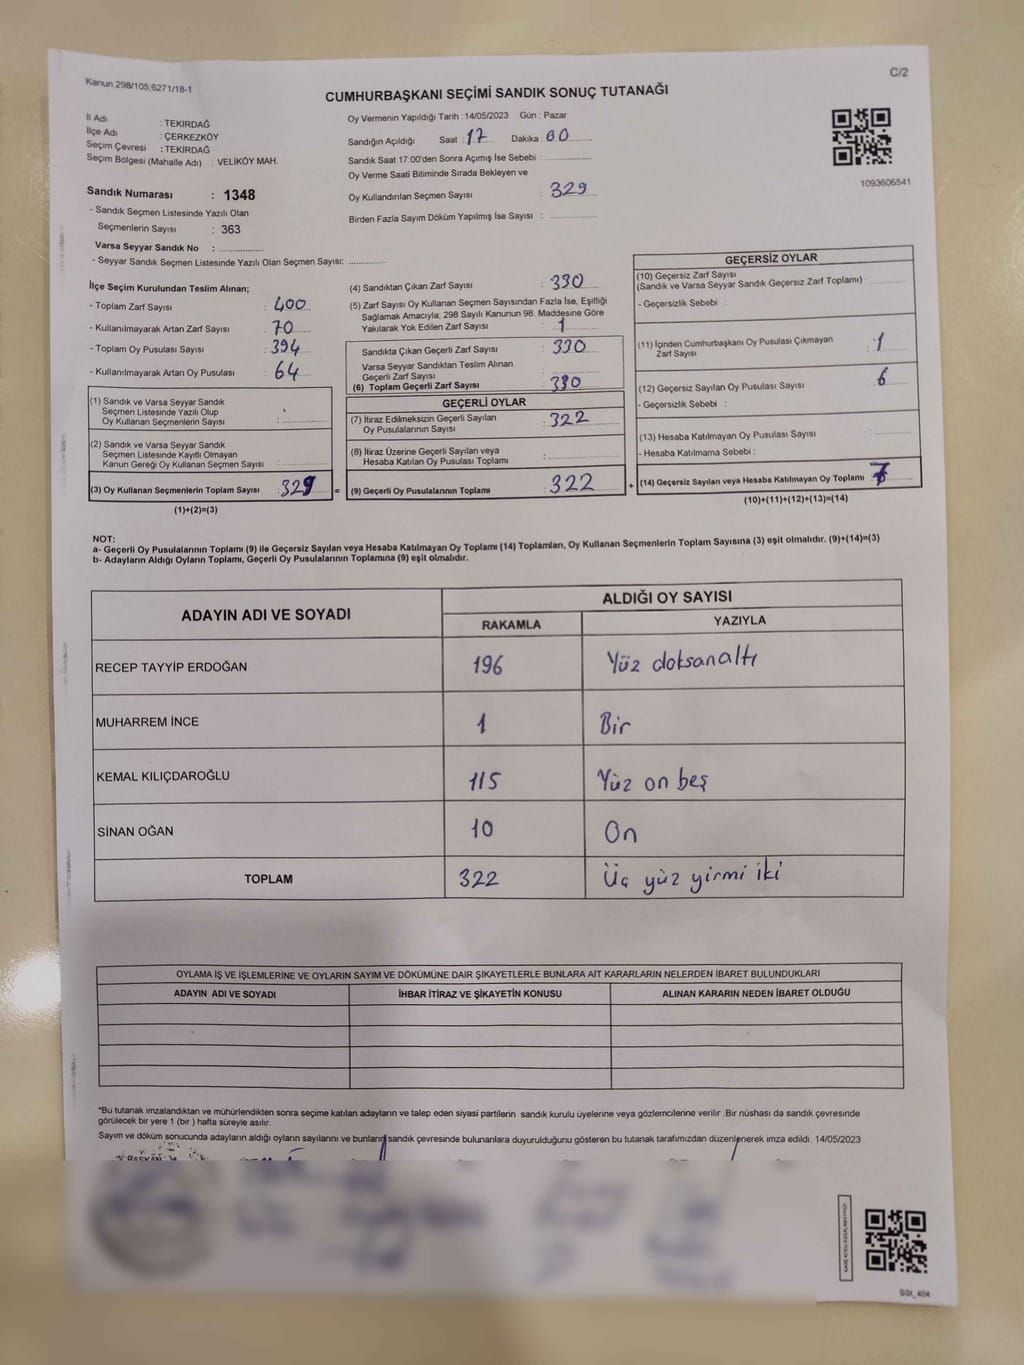 Kanun.298/105,6271/18-1
C/2
CUMHURBAŞKANI SEÇİMİ SANDIK SONUÇ TUTANAĞI
İl Adı : TEKİRDAĞ
İlçe Adı : ÇERKEZKÖY
Seçim Çevresi : TEKİRDAĞ
Seçim Bölgesi (Mahalle Adı) : VELİKÖY MAH.
Sandık Numarası : 1348
- Sandık Seçmen Listesinde Yazılı Olan
Seçmenlerin Sayısı : 363
Varsa Seyyar Sandık No : ..................
- Seyyar Sandık Seçmen Listesinde Yazılı Olan Seçmen Sayısı: ..............
Oy Vermenin Yapıldığı Tarih : 14/05/2023 Gün : Pazar
Sandığın Açıldığı Saat : 17 Dakika : 60
Sandık Saat 17:00'den Sonra Açımış İse Sebebi : ..................
Oy Verme Saati Bitiminde Sırada Bekleyen ve
Oy Kullandırılan Seçmen Sayısı : 329
Birden Fazla Sayım Döküm Yapılmış İse Sayısı : ..................
1093606541
İlçe Seçim Kurulundan Teslim Alınan;
- Toplam Zarf Sayısı : 400
- Kullanılmayarak Artan Zarf Sayısı : 70
- Toplam Oy Pusulası Sayısı : 394
- Kullanılmayarak Artan Oy Pusulası : 64
(1) Sandık ve Varsa Seyyar Sandık
Seçmen Listesinde Yazılı Olup
Oy Kullanan Seçmenlerin Sayısı : ..................
(2) Sandık ve Varsa Seyyar Sandık
Seçmen Listesinde Kayıtlı Olmayan
Kanun Gereği Oy Kullanan Seçmen Sayısı : ..................
(3) Oy Kullanan Seçmenlerin Toplam Sayısı : 329 =
(1)+(2)=(3)
(4) Sandıktan Çıkan Zarf Sayısı : 330
(5) Zarf Sayısı Oy Kullanan Seçmen Sayısından Fazla İse, Eşitliği
Sağlamak Amacıyla; 298 Sayılı Kanunun 98. Maddesine Göre
Yakılarak Yok Edilen Zarf Sayısı : 1
Sandıkta Çıkan Geçerli Zarf Sayısı : 330
Varsa Seyyar Sandıktan Teslim Alınan
Geçerli Zarf Sayısı : ..................
(6) Toplam Geçerli Zarf Sayısı : 330
GEÇERLİ OYLAR
(7) İtiraz Edilmeksizin Geçerli Sayılan
Oy Pusulalarının Sayısı : 322
(8) İtiraz Üzerine Geçerli Sayılan veya
Hesaba Katılan Oy Pusulası Toplamı : ..................
(9) Geçerli Oy Pusulalarının Toplamı : 322 +
GEÇERSİZ OYLAR
(10) Geçersiz Zarf Sayısı
(Sandık ve Varsa Seyyar Sandık Geçersiz Zarf Toplamı) : ..............
- Geçersizlik Sebebi :
(11) İçinden Cumhurbaşkanı Oy Pusulası Çıkmayan
Zarf Sayısı : 1
(12) Geçersiz Sayılan Oy Pusulası Sayısı : 6
- Geçersizlik Sebebi :
(13) Hesaba Katılmayan Oy Pusulası Sayısı : ..............
- Hesaba Katılmama Sebebi :
(14) Geçersiz Sayılan veya Hesaba Katılmayan Oy Toplamı : 7
(10)+(11)+(12)+(13)=(14)
NOT:
a- Geçerli Oy Pusulalarının Toplamı (9) ile Geçersiz Sayılan veya Hesaba Katılmayan Oy Toplamı (14) Toplamları, Oy Kullanan Seçmenlerin Toplam Sayısına (3) eşit olmalıdır. (9)+(14)=(3)
b- Adayların Aldığı Oyların Toplamı, Geçerli Oy Pusulalarının Toplamına (9) eşit olmalıdır.
ADAYIN ADI VE SOYADI
ALDIĞI OY SAYISI
RAKAMLA YAZIYLA
RECEP TAYYİP ERDOĞAN 196 Yüz doksanaltı
MUHARREM İNCE 1 Bir
KEMAL KILIÇDAROĞLU 115 Yüz on beş
SİNAN OĞAN 10 On
TOPLAM 322 Üç yüz yirmi iki
OYLAMA İŞ VE İŞLEMLERİNE VE OYLARIN SAYIM VE DÖKÜMÜNE DAİR ŞİKAYETLERLE BUNLARA AİT KARARLARIN NELERDEN İBARET BULUNDUKLARI
ADAYIN ADI VE SOYADI İHBAR İTİRAZ VE ŞİKAYETİN KONUSU ALINAN KARARIN NEDEN İBARET OLDUĞU
*Bu tutanak imzalandıktan ve mühürlendikten sonra seçime katılan adayların ve talep eden siyasi partilerin sandık kurulu üyelerine veya gözlemcilerine verilir .Bir nüshası da sandık çevresinde
görülecek bir yere 1 (bir ) hafta süreyle asılır.
Sayım ve döküm sonucunda adayların aldığı oyların sayılarını ve bunların sandık çevresinde bulunanlara duyurulduğunu gösteren bu tutanak tarafımızdan düzenlenerek imza edildi. 14/05/2023
BAŞKAN